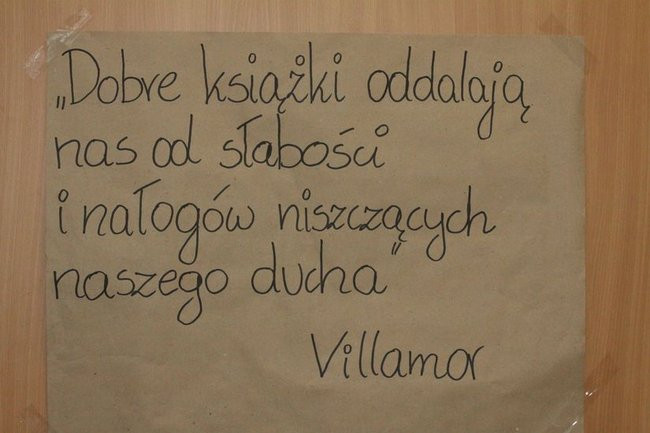 „Dobre książki oddalają
nas od słabości
i nałogów niszczących
naszego ducha”
Villamor